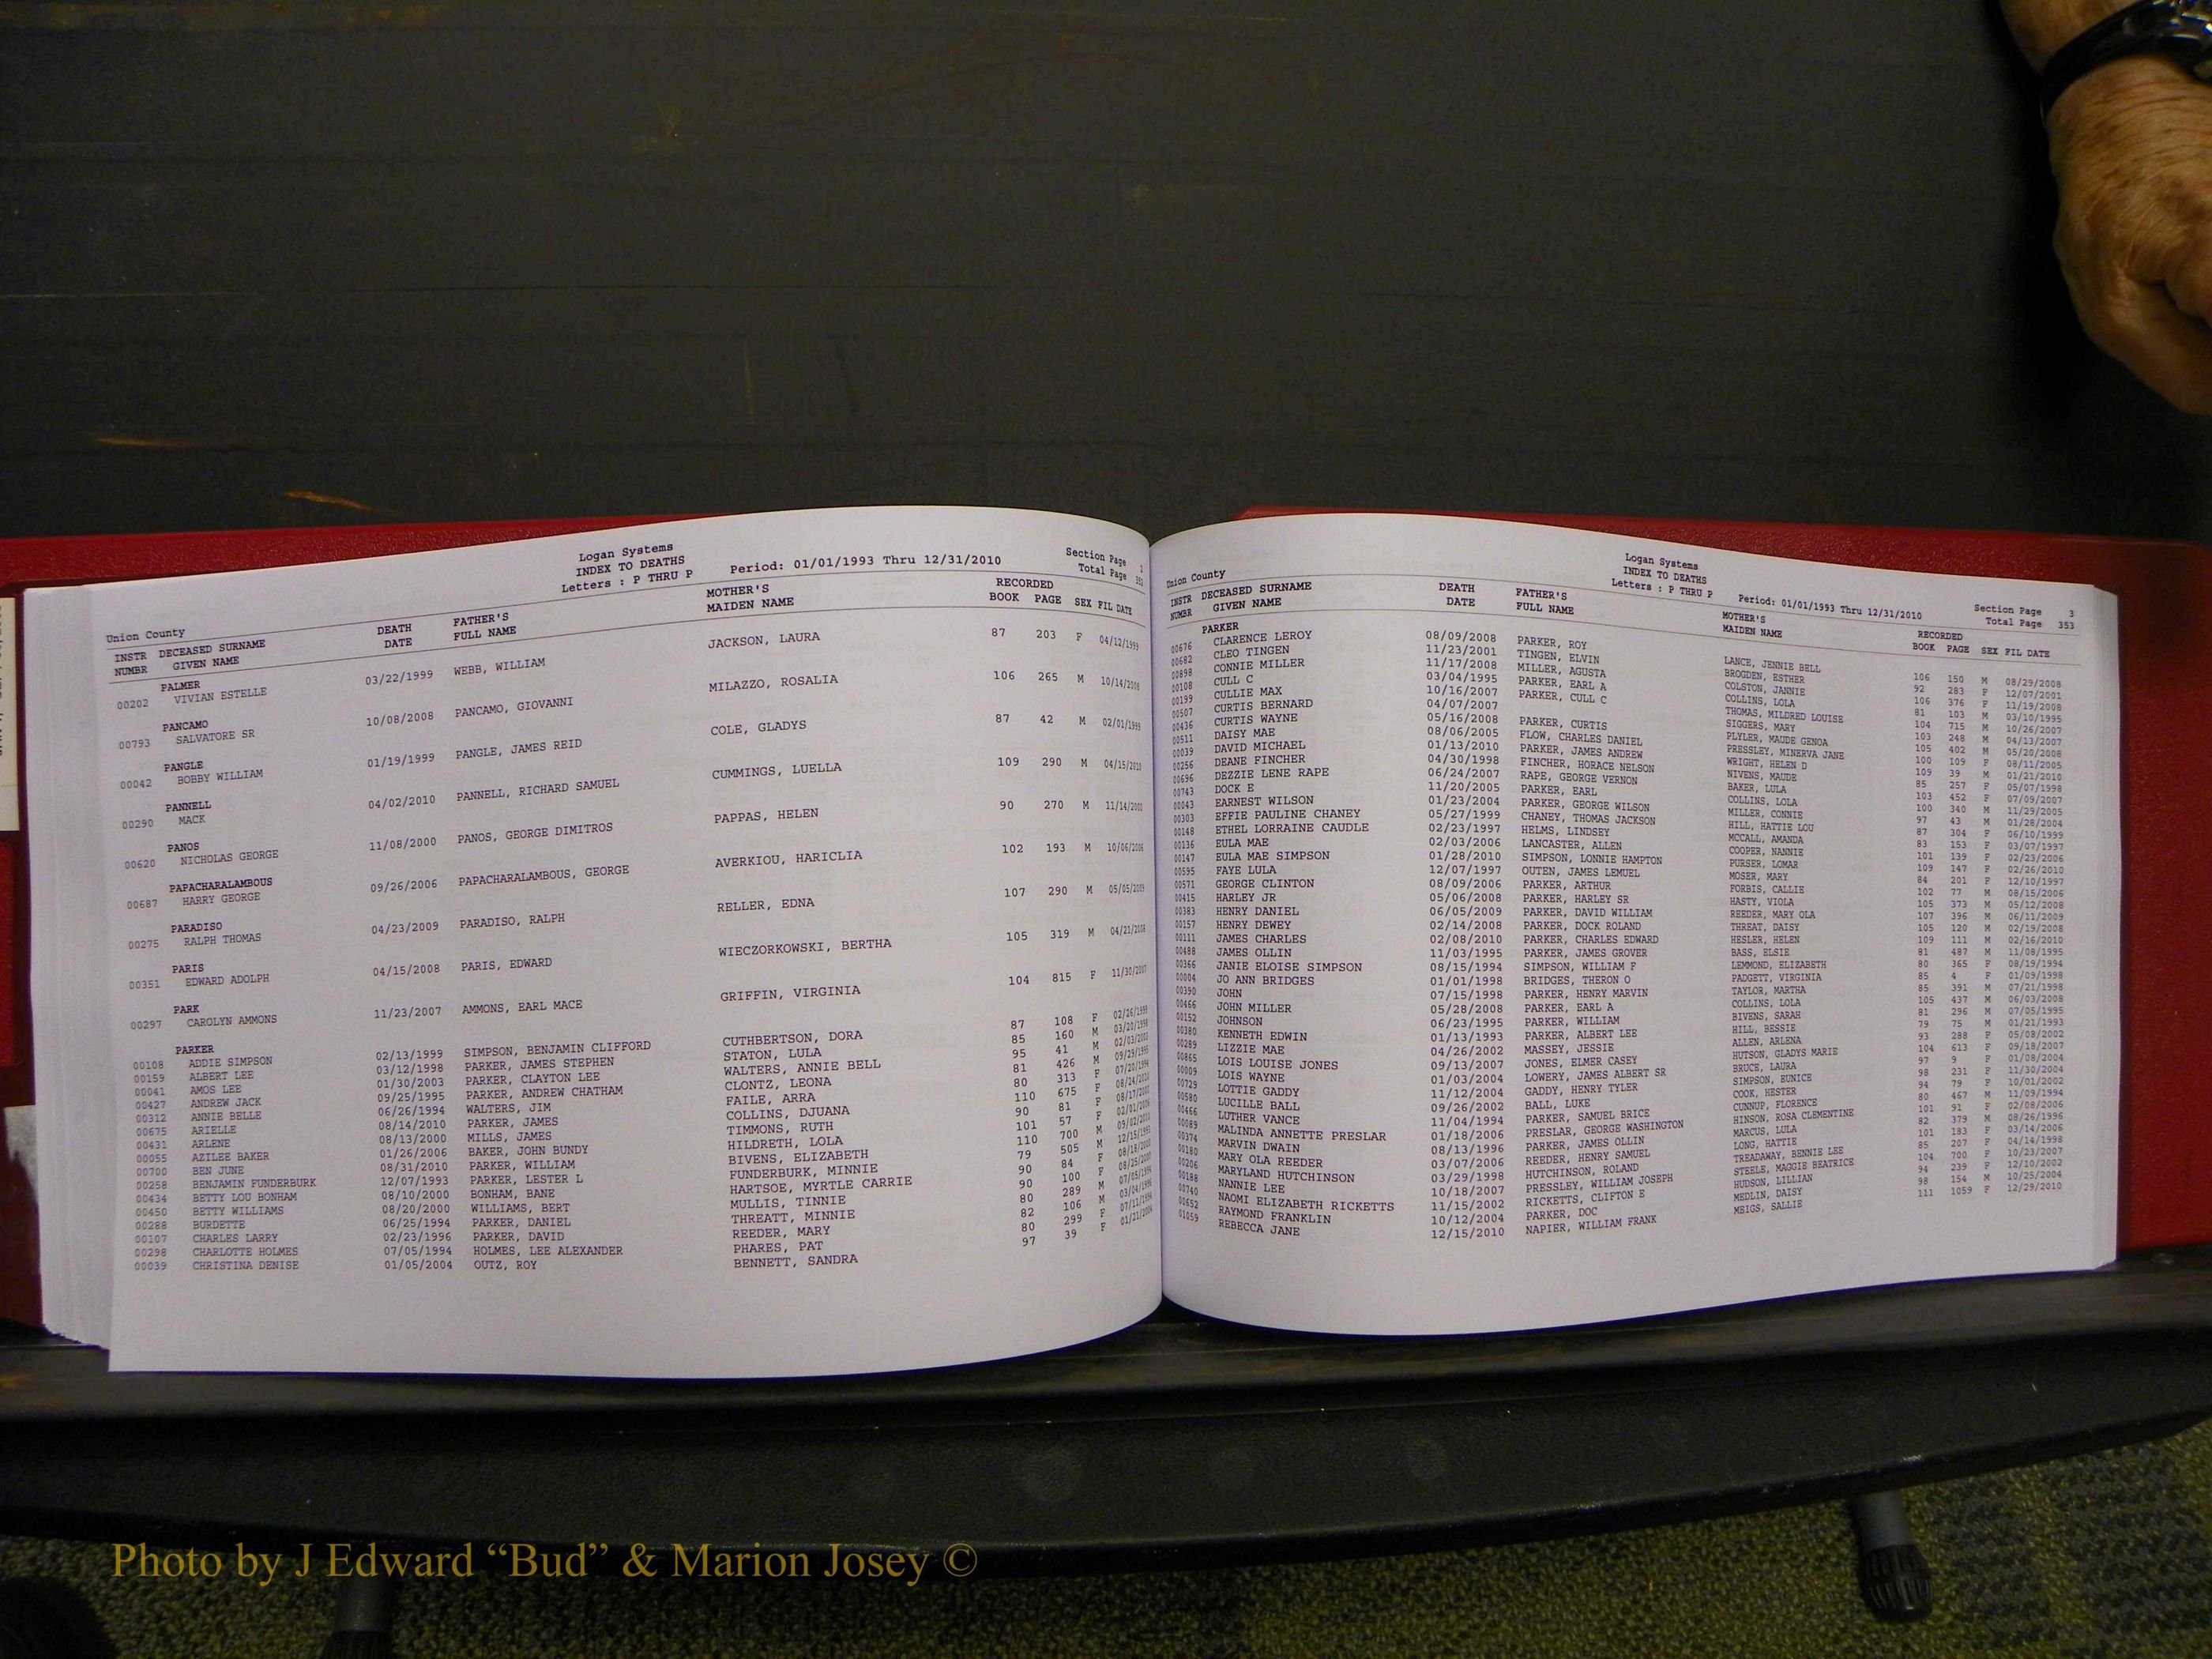 Logan Systems
INDEX TO DEATHS
Letters : P THRU P Period: 01/01/1993 Thru 12/31/2010
Section Page
Total Page
Union County
INSTR NUMBR DECEASED SURNAME GIVEN NAME DEATH DATE FATHER'S FULL NAME MOTHER'S MAIDEN NAME RECORDED BOOK PAGE SEX FIL DATE
PALMER
00202 VIVIAN ESTELLE 03/22/1999 WEBB, WILLIAM JACKSON, LAURA 87 203 F 04/12/1999
PANCAMO
00793 SALVATORE SR 10/08/2008 PANCAMO, GIOVANNI MILAZZO, ROSALIA 106 265 M 10/14/2008
PANGLE
00042 BOBBY WILLIAM 01/19/1999 PANGLE, JAMES REID COLE, GLADYS 87 42 M 02/01/1999
PANNELL
00290 MACK 04/02/2010 PANNELL, RICHARD SAMUEL CUMMINGS, LUELLA 109 290 M 04/15/2010
PANOS
00620 NICHOLAS GEORGE 11/08/2000 PANOS, GEORGE DIMITROS PAPPAS, HELEN 90 270 M 11/14/2000
PAPACHARALAMBOUS
00687 HARRY GEORGE 09/26/2006 PAPACHARALAMBOUS, GEORGE AVERKIOU, HARICLIA 102 193 M 10/06/2006
PARADISO
00275 RALPH THOMAS 04/23/2009 PARADISO, RALPH RELLER, EDNA 107 290 M 05/05/2009
PARIS
00351 EDWARD ADOLPH 04/15/2008 PARIS, EDWARD WIECZORKOWSKI, BERTHA 105 319 M 04/21/2008
PARK
00297 CAROLYN AMMONS 11/23/2007 AMMONS, EARL MACE GRIFFIN, VIRGINIA 104 815 F 11/30/2007
PARKER
00108 ADDIE SIMPSON 02/13/1999 SIMPSON, BENJAMIN CLIFFORD CUTHBERTSON, DORA 87 108 F 02/26/1999
00159 ALBERT LEE 03/12/1998 PARKER, JAMES STEPHEN STATON, LULA 85 160 M 03/20/1998
00041 AMOS LEE 01/30/2003 PARKER, CLAYTON LEE WALTERS, ANNIE BELL 95 41 M 02/03/2003
00427 ANDREW JACK 09/25/1995 PARKER, ANDREW CHATHAM CLONTZ, LEONA 81 426 M 09/29/1995
00312 ANNIE BELLE 06/26/1994 WALTERS, JIM FAILE, ARRA 80 313 F 07/20/1994
00675 ARIELLE 08/14/2010 PARKER, JAMES COLLINS, DJUANA 110 675 F 08/24/2010
00431 ARLENE 08/13/2000 MILLS, JAMES TIMMONS, RUTH 90 81 F 08/17/2000
00055 AZILEE BAKER 01/26/2006 BAKER, JOHN BUNDY HILDRETH, LOLA 101 57 F 02/01/2006
00700 BEN JUNE 08/31/2010 PARKER, WILLIAM BIVENS, ELIZABETH 110 700 M 09/02/2010
00258 BENJAMIN FUNDERBURK 12/07/1993 PARKER, LESTER L FUNDERBURK, MINNIE 79 505 M 12/15/1993
00434 BETTY LOU BONHAM 08/10/2000 BONHAM, BANE HARTSOE, MYRTLE CARRIE 90 84 F 08/18/2000
00450 BETTY WILLIAMS 08/20/2000 WILLIAMS, BERT MULLIS, TINNIE 90 100 F 08/25/2000
00288 BURDETTE 06/25/1994 PARKER, DANIEL THREATT, MINNIE 80 289 M 07/05/1994
00107 CHARLES LARRY 02/23/1996 PARKER, DAVID REEDER, MARY 82 106 M 03/04/1996
00298 CHARLOTTE HOLMES 07/05/1994 HOLMES, LEE ALEXANDER PHARES, PAT 80 299 F 07/11/1994
00039 CHRISTINA DENISE 01/05/2004 OUTZ, ROY BENNETT, SANDRA 97 39 F 01/21/2004
Logan Systems
INDEX TO DEATHS
Letters : P THRU P Period: 01/01/1993 Thru 12/31/2010
Section Page 3
Total Page 353
Union County
INSTR NUMBR DECEASED SURNAME GIVEN NAME DEATH DATE FATHER'S FULL NAME MOTHER'S MAIDEN NAME RECORDED BOOK PAGE SEX FIL DATE
PARKER
00676 CLARENCE LEROY 08/09/2008 PARKER, ROY LANCE, JENNIE BELL 106 150 M 08/29/2008
00682 CLEO TINGEN 11/23/2001 TINGEN, ELVIN BROGDEN, ESTHER 92 283 F 12/07/2001
00898 CONNIE MILLER 11/17/2008 MILLER, AGUSTA COLSTON, JANNIE 106 376 F 11/19/2008
00108 CULL C 03/04/1995 PARKER, EARL A COLLINS, LOLA 81 103 M 03/10/1995
00199 CULLIE MAX 10/16/2007 PARKER, CULL C THOMAS, MILDRED LOUISE 104 715 M 10/26/2007
00507 CURTIS BERNARD 04/07/2007 SIGGERS, MARY 103 248 M 04/13/2007
00436 CURTIS WAYNE 05/16/2008 PARKER, CURTIS PLYLER, MAUDE GENOA 105 402 M 05/20/2008
00511 DAISY MAE 08/06/2005 FLOW, CHARLES DANIEL PRESSLEY, MINERVA JANE 100 109 F 08/11/2005
00039 DAVID MICHAEL 01/13/2010 PARKER, JAMES ANDREW WRIGHT, HELEN D 109 39 M 01/21/2010
00256 DEANE FINCHER 04/30/1998 FINCHER, HORACE NELSON NIVENS, MAUDE 85 257 F 05/07/1998
00696 DEZZIE LENE RAPE 06/24/2007 RAPE, GEORGE VERNON BAKER, LULA 103 452 F 07/09/2007
00743 DOCK E 11/20/2005 PARKER, EARL COLLINS, LOLA 100 340 M 11/29/2005
00043 EARNEST WILSON 01/23/2004 PARKER, GEORGE WILSON MILLER, CONNIE 97 43 M 01/28/2004
00303 EFFIE PAULINE CHANEY 05/27/1999 CHANEY, THOMAS JACKSON HILL, HATTIE LOU 87 304 F 06/10/1999
00148 ETHEL LORRAINE CAUDLE 02/23/1997 HELMS, LINDSEY MCCALL, AMANDA 83 153 F 03/07/1997
00136 EULA MAE 02/03/2006 LANCASTER, ALLEN COOPER, NANNIE 101 139 F 02/23/2006
00147 EULA MAE SIMPSON 01/28/2010 SIMPSON, LONNIE HAMPTON PURSER, LOMAR 109 147 F 02/26/2010
00595 FAYE LULA 12/07/1997 OUTEN, JAMES LEMUEL MOSER, MARY 84 201 F 12/10/1997
00571 GEORGE CLINTON 08/09/2006 PARKER, ARTHUR FORBIS, CALLIE 102 77 M 08/15/2006
00415 HARLEY JR 05/06/2008 PARKER, HARLEY SR HASTY, VIOLA 105 373 M 05/12/2008
00383 HENRY DANIEL 06/05/2009 PARKER, DAVID WILLIAM REEDER, MARY OLA 107 396 M 06/11/2009
00157 HENRY DEWEY 02/14/2008 PARKER, DOCK ROLAND THREAT, DAISY 105 120 M 02/19/2008
00111 JAMES CHARLES 02/08/2010 PARKER, CHARLES EDWARD HESLER, HELEN 109 111 M 02/16/2010
00488 JAMES OLLIN 11/03/1995 PARKER, JAMES GROVER BASS, ELSIE 81 487 M 11/08/1995
00366 JANIE ELOISE SIMPSON 08/15/1994 SIMPSON, WILLIAM F LEMMOND, ELIZABETH 80 365 F 08/19/1994
00004 JO ANN BRIDGES 01/01/1998 BRIDGES, THERON O PADGETT, VIRGINIA 85 4 F 01/09/1998
00390 JOHN 07/15/1998 PARKER, HENRY MARVIN TAYLOR, MARTHA 85 391 M 07/21/1998
00466 JOHN MILLER 05/28/2008 PARKER, EARL A COLLINS, LOLA 105 437 M 06/03/2008
00152 JOHNSON 06/23/1995 PARKER, WILLIAM BIVENS, SARAH 81 296 M 07/05/1995
00380 KENNETH EDWIN 01/13/1993 PARKER, ALBERT LEE HILL, BESSIE 79 75 M 01/21/1993
00289 LIZZIE MAE 04/26/2002 MASSEY, JESSIE ALLEN, ARLENA 93 288 F 05/08/2002
00865 LOIS LOUISE JONES 09/13/2007 JONES, ELMER CASEY HUTSON, GLADYS MARIE 104 613 F 09/18/2007
00009 LOIS WAYNE 01/03/2004 LOWERY, JAMES ALBERT SR BRUCE, LAURA 97 9 F 01/08/2004
00729 LOTTIE GADDY 11/12/2004 GADDY, HENRY TYLER SIMPSON, EUNICE 98 231 F 11/30/2004
00580 LUCILLE BALL 09/26/2002 BALL, LUKE COOK, HESTER 94 79 F 10/01/2002
00466 LUTHER VANCE 11/04/1994 PARKER, SAMUEL BRICE CUNNUP, FLORENCE 80 467 M 11/09/1994
00089 MALINDA ANNETTE PRESLAR 01/18/2006 PRESLAR, GEORGE WASHINGTON HINSON, ROSA CLEMENTINE 101 91 F 02/08/2006
00374 MARVIN DWAIN 08/13/1996 PARKER, JAMES OLLIN MARCUS, LULA 82 379 M 08/26/1996
00180 MARY OLA REEDER 03/07/2006 REEDER, HENRY SAMUEL LONG, HATTIE 101 183 F 03/14/2006
00206 MARYLAND HUTCHINSON 03/29/1998 HUTCHINSON, ROLAND TREADAWAY, BENNIE LEE 85 207 F 04/14/1998
00188 NANNIE LEE 10/18/2007 PRESSLEY, WILLIAM JOSEPH STEELE, MAGGIE BEATRICE 104 700 F 10/23/2007
00740 NAOMI ELIZABETH RICKETTS 11/15/2002 RICKETTS, CLIFTON E HUDSON, LILLIAN 94 239 F 12/10/2002
00652 RAYMOND FRANKLIN 10/12/2004 PARKER, DOC MEDLIN, DAISY 98 154 M 10/25/2004
01059 REBECCA JANE 12/15/2010 NAPIER, WILLIAM FRANK MEIGS, SALLIE 111 1059 F 12/29/2010
Photo by J Edward “Bud” & Marion Josey ©